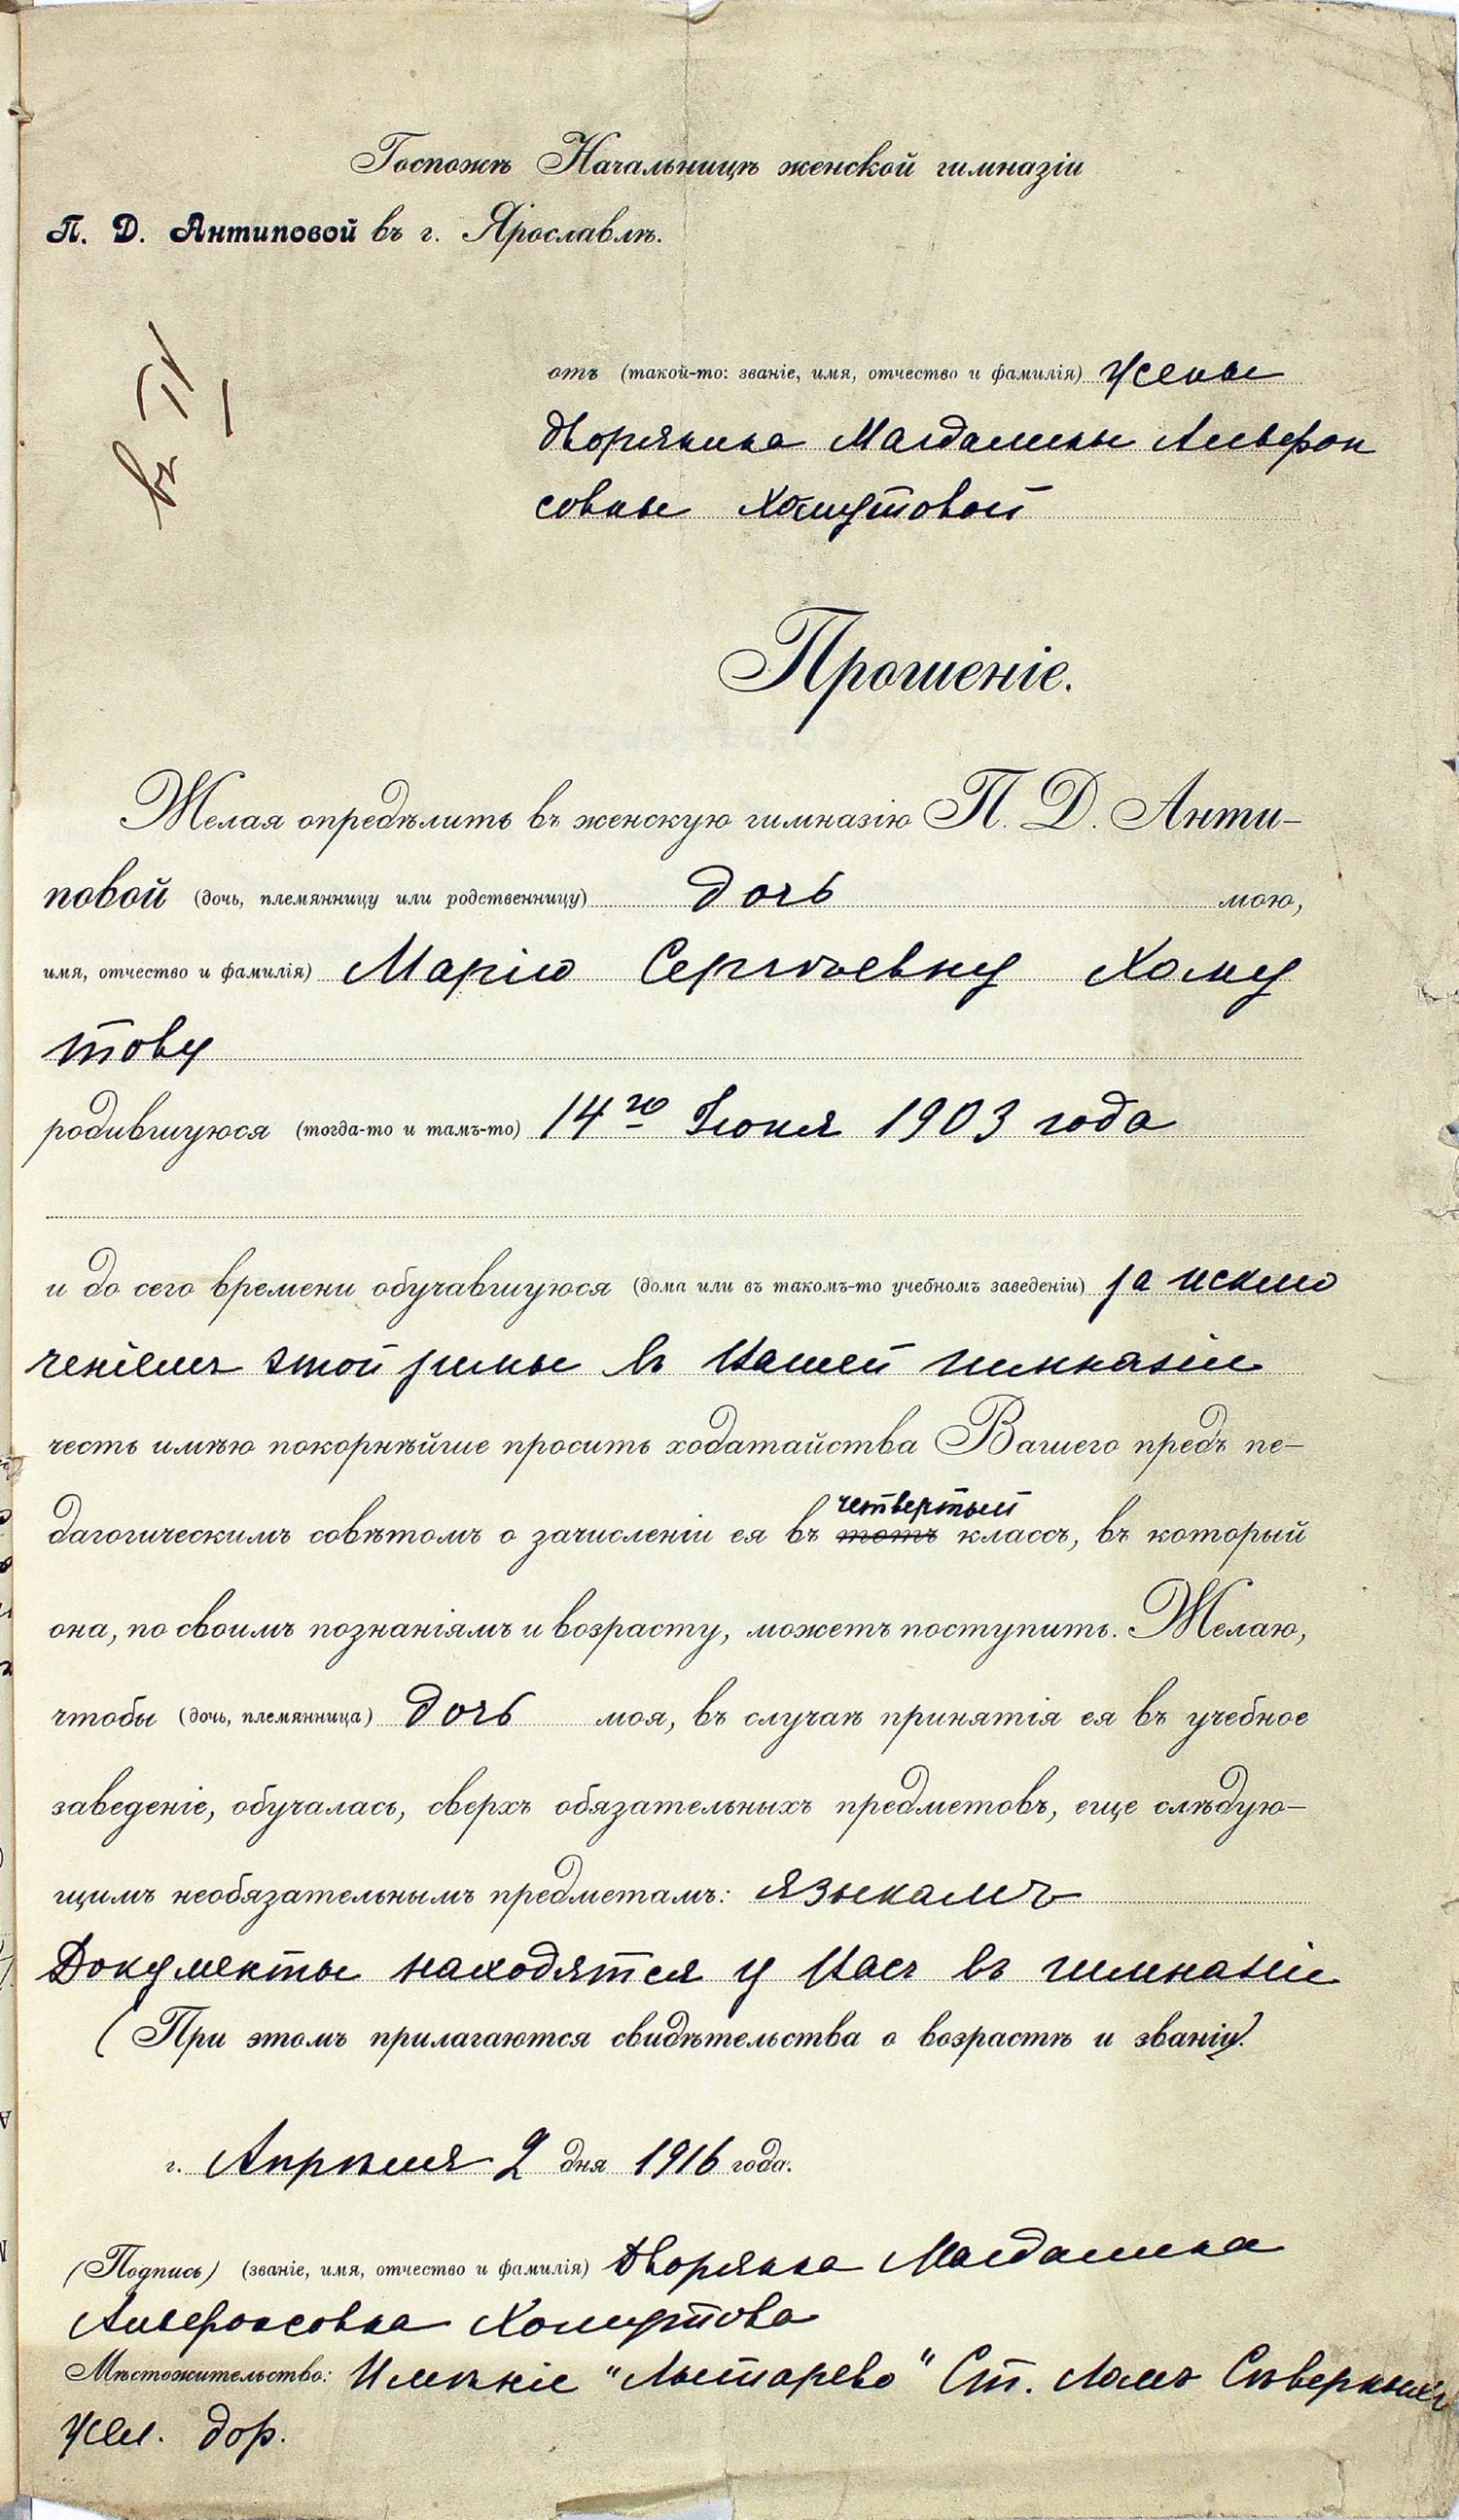 Госпожѣ Начальницѣ женской гимназіи
П. Д. Антиповой въ г. Ярославлѣ.
въ IV
отъ (такой-то: званіе, имя, отчество и фамилія) Жены
дворянина Магдалины Альфон
совны Хомутовой
Прошеніе.
Желая опредѣлить въ женскую гимназію П. Д. Анти-
повой (дочь, племянницу или родственницу) дочь мою,
имя, отчество и фамилія) Марію Сергѣевну Хому
тову
родившуюся (тогда-то и тамъ-то) 14го Іюня 1903 года
и до сего времени обучавшуюся (дома или въ такомъ-то учебномъ заведеніи) за исклю
ченіемъ этой зимы въ Вашей гимназіи
честь имѣю покорнѣйше просить ходатайства Вашего предъ пе-
четвертый
дагогическимъ совѣтомъ о зачисленіи ея въ тотъ классъ, въ который
она, по своимъ познаніямъ и возрасту, можетъ поступить. Желаю,
чтобы (дочь, племянница) дочь моя, въ случаѣ принятія ея въ учебное
заведеніе, обучалась, сверхъ обязательныхъ предметовъ, еще слѣдую-
щимъ необязательнымъ предметамъ: языкамъ
Документы находятся у Васъ въ гимназіи
(При этомъ прилагаются свидѣтельства о возрастѣ и званіи).
г. Апрѣля 2 дня 1916 года.
(Подпись) (званіе, имя, отчество и фамилія) Дворянка Магдалина
Альфонсовна Хомутова
Мѣстожительство: Имѣніе "Лытарево" Ст. Ломъ Сѣверныхъ
жел. дор.